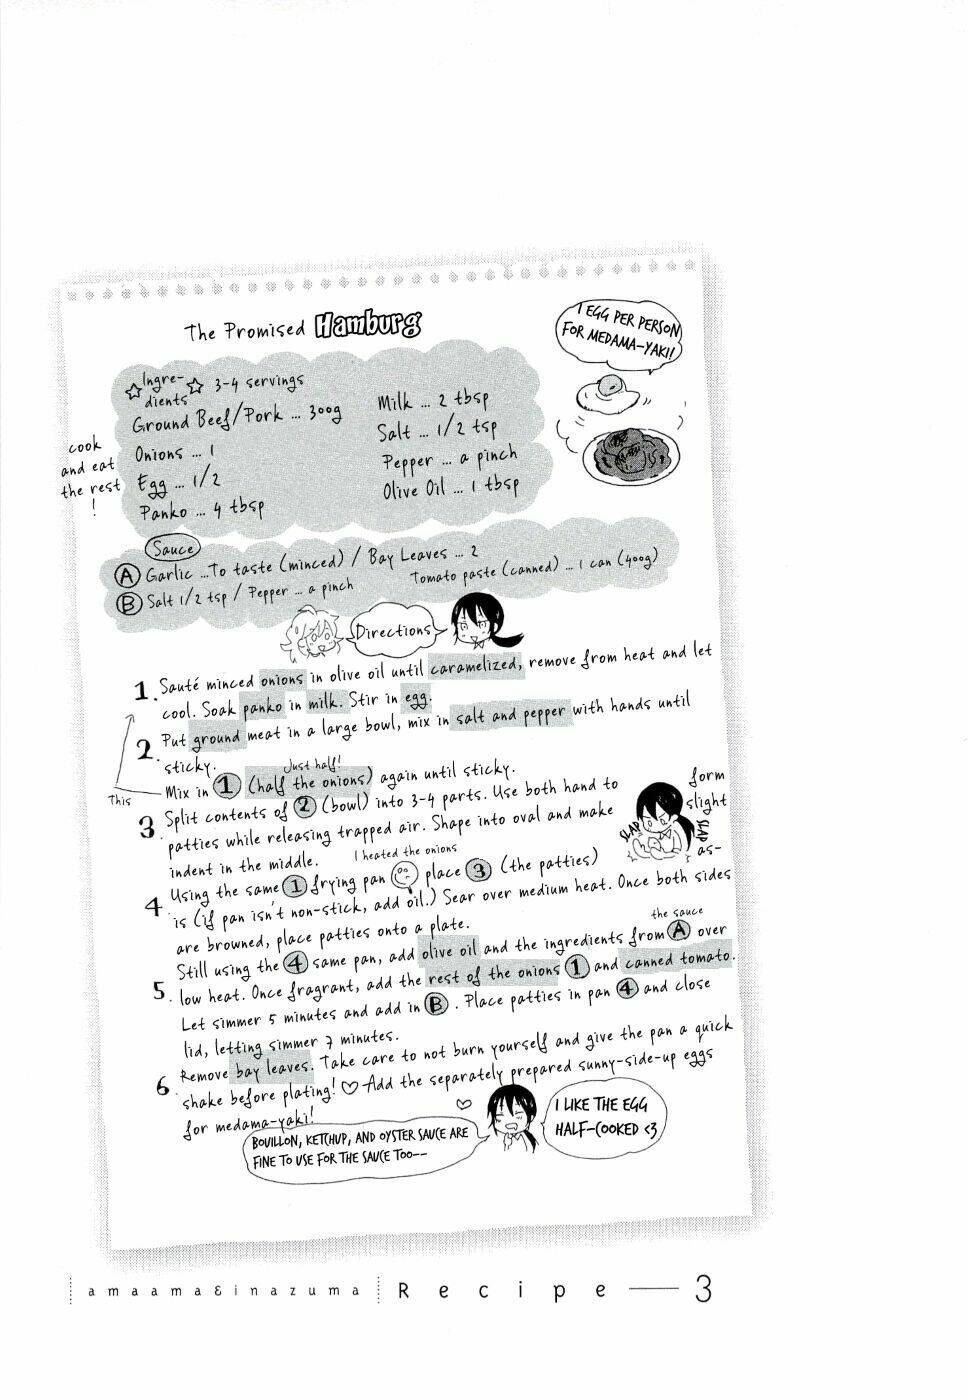 The Promised Hamburg
I EGG PER PERSON
FOR MEDAMA-YAKI!
Ingre-
dients
3-4 servings
Ground Beef/Pork ... 300g
Onions ... 1
Egg ... 1/2
Panko ... 4 tbsp
Milk ... 2 tbsp
Salt ... 1/2 tsp
Pepper ... a pinch
Olive Oil ... 1 tbsp
cook
and eat
the rest
!
Sauce
A Garlic ...To taste (minced) / Bay Leaves ... 2
Tomato paste (canned) ... 1 can (400g)
B Salt 1/2 tsp / Pepper ... a pinch
Directions
1. Sauté minced onions in olive oil until caramelized, remove from heat and let
cool. Soak panko in milk. Stir in egg.
2. Put ground meat in a large bowl, mix in salt and pepper with hands until
sticky.
Just half!
Mix in 1 (half the onions) again until sticky.
This
3. Split contents of 2 (bowl) into 3-4 parts. Use both hand to form
patties while releasing trapped air. Shape into oval and make slight
indent in the middle.
SLAP
SLAP
I heated the onions
4. Using the same 1 frying pan place 3 (the patties) as-
is (if pan isn't non-stick, add oil.) Sear over medium heat. Once both sides
are browned, place patties onto a plate.
the sauce
5. Still using the 4 same pan, add olive oil and the ingredients from A over
low heat. Once fragrant, add the rest of the onions 1 and canned tomato.
Let simmer 5 minutes and add in B. Place patties in pan 4 and close
lid, letting simmer 7 minutes.
6. Remove bay leaves. Take care to not burn yourself and give the pan a quick
shake before plating! ♡ Add the separately prepared sunny-side-up eggs
for medama-yaki!
BOUILLON, KETCHUP, AND OYSTER SAUCE ARE
FINE TO USE FOR THE SAUCE TOO--
I LIKE THE EGG
HALF-COOKED <3
amaama&inazuma Recipe — 3